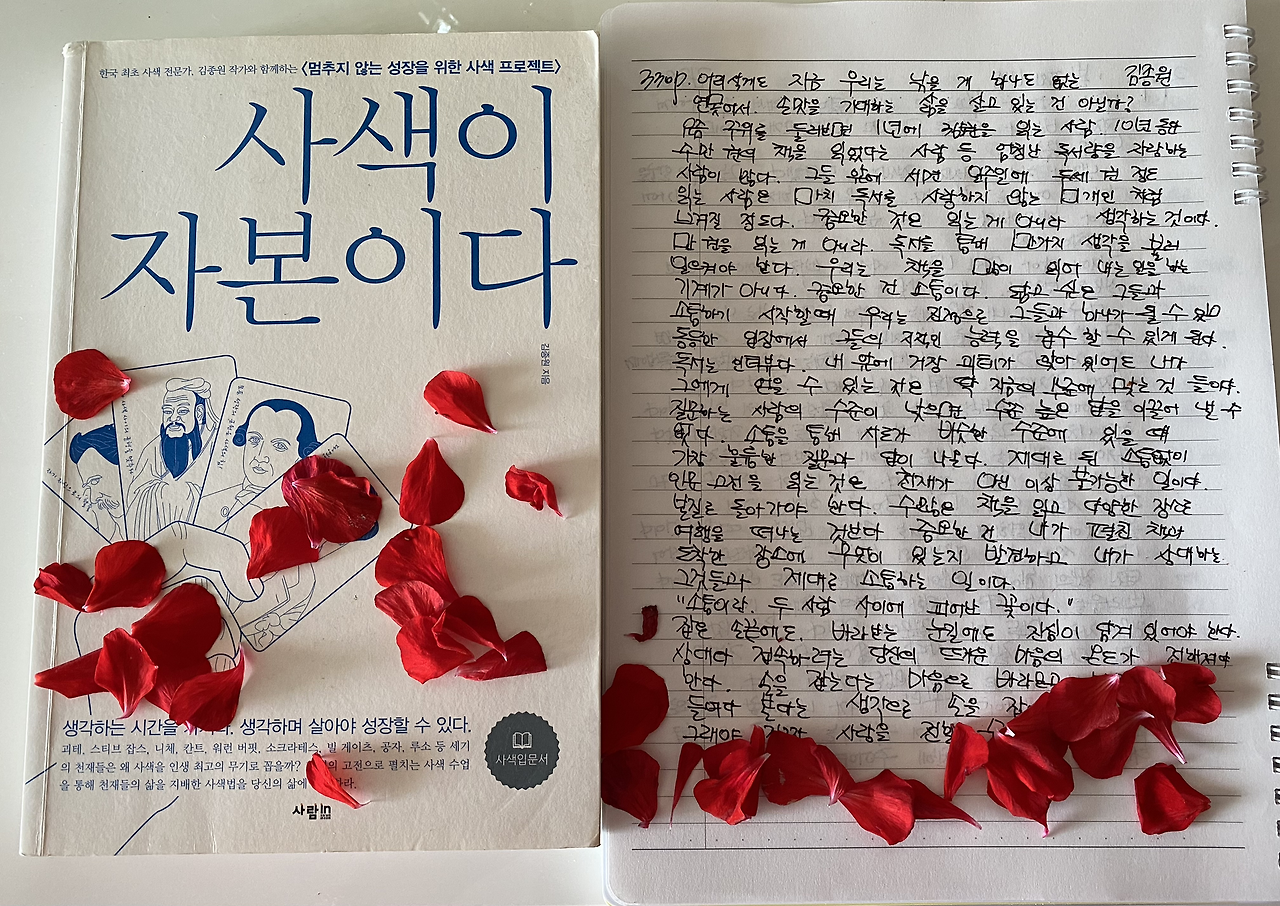 한국 최초 사색 전문가, 김종원 작가와 함께하는 〈멈추지 않는 성장을 위한 사색 프로젝트〉
사색이
자본이다
김종원 지음
생각하는 시간을 생각하며 살아야 성장할 수 있다.
괴테, 스티브 잡스, 니체, 칸트, 워런 버핏, 소크라테스, 빌 게이츠, 공자, 루소 등 세기
의 천재들은 왜 사색을 인생 최고의 무기로 꼽을까? 고전으로 펼치는 사색 수업
을 통해 천재들의 삶을 지배한 사색법을 당신의 삶에
사색입문서
사람in
330p. 어리석게도 지금 우리는 낚을 게 하나도 없는 김종원
연못에서 손맛을 기대하는 삶을 살고 있는 건 아닐까?
요즘 주위를 둘러보면 1년에 읽는 사람. 10년 동안
수만 권의 책을 읽었다는 사람 등 엄청난 독서량을 자랑하는
사람이 많다. 그들 앞에 서면 일주일에 두세 권 정도
읽는 사람은 마치 독서를 사랑하지 않는 미개인 처럼
느껴질 정도다. 중요한 것은 읽는 게 아니라 생각하는 것이다.
만 권을 읽는 게 아니라. 독서를 통해 만가지 생각을 불러
일으켜야 한다. 우리는 책을 많이 읽어 내는
기계가 아니다. 중요한 건 소통이다. 닮고 싶은 그들과
소통하기 시작할때 우리는 진정으로 그들과 하나가 될 수 있고
동등한 입장에서 그들의 지적인 능력을 흡수 할 수 있게 된다.
독서는 인터뷰다. 내 앞에 거장 괴테가 앉아 있어도 내가
그에게 얻을 수 있는 것은 딱 자신의 수준에 맞는 것 들이다.
질문하는 사람의 수준이 낮으면 수준 높은 답을 이끌어 낼 수
없다. 소통을 통해 서로가 비슷한 수준에 있을 때
가장 훌륭한 질문과 답이 나온다. 제대로 된 소통없이
인문 고전을 읽는 것은 천재가 더 이상 불가능한 일이다.
본질로 돌아가야 한다. 수많은 책을 읽고 다양한 장소로
여행을 떠나는 것보다 중요한 건 내가 펼친 책과
도착한 장소에 무엇이 있는지 발견하고 내가 상대하는
그것들과 제대로 소통하는 일이다.
"소통이란. 두 사람 사이에 피어난 꽃이다."
잡은 손끝에도. 바라보는 눈길에도 진심이 담겨 있어야 한다.
상대와 접속하려는 당신의 뜨거운 마음의 온도가 전해져야
한다. 손을 잡는다는 마음으로 바라보고
들여다 본다는 생각으로 손을
그래야 사랑을 전할